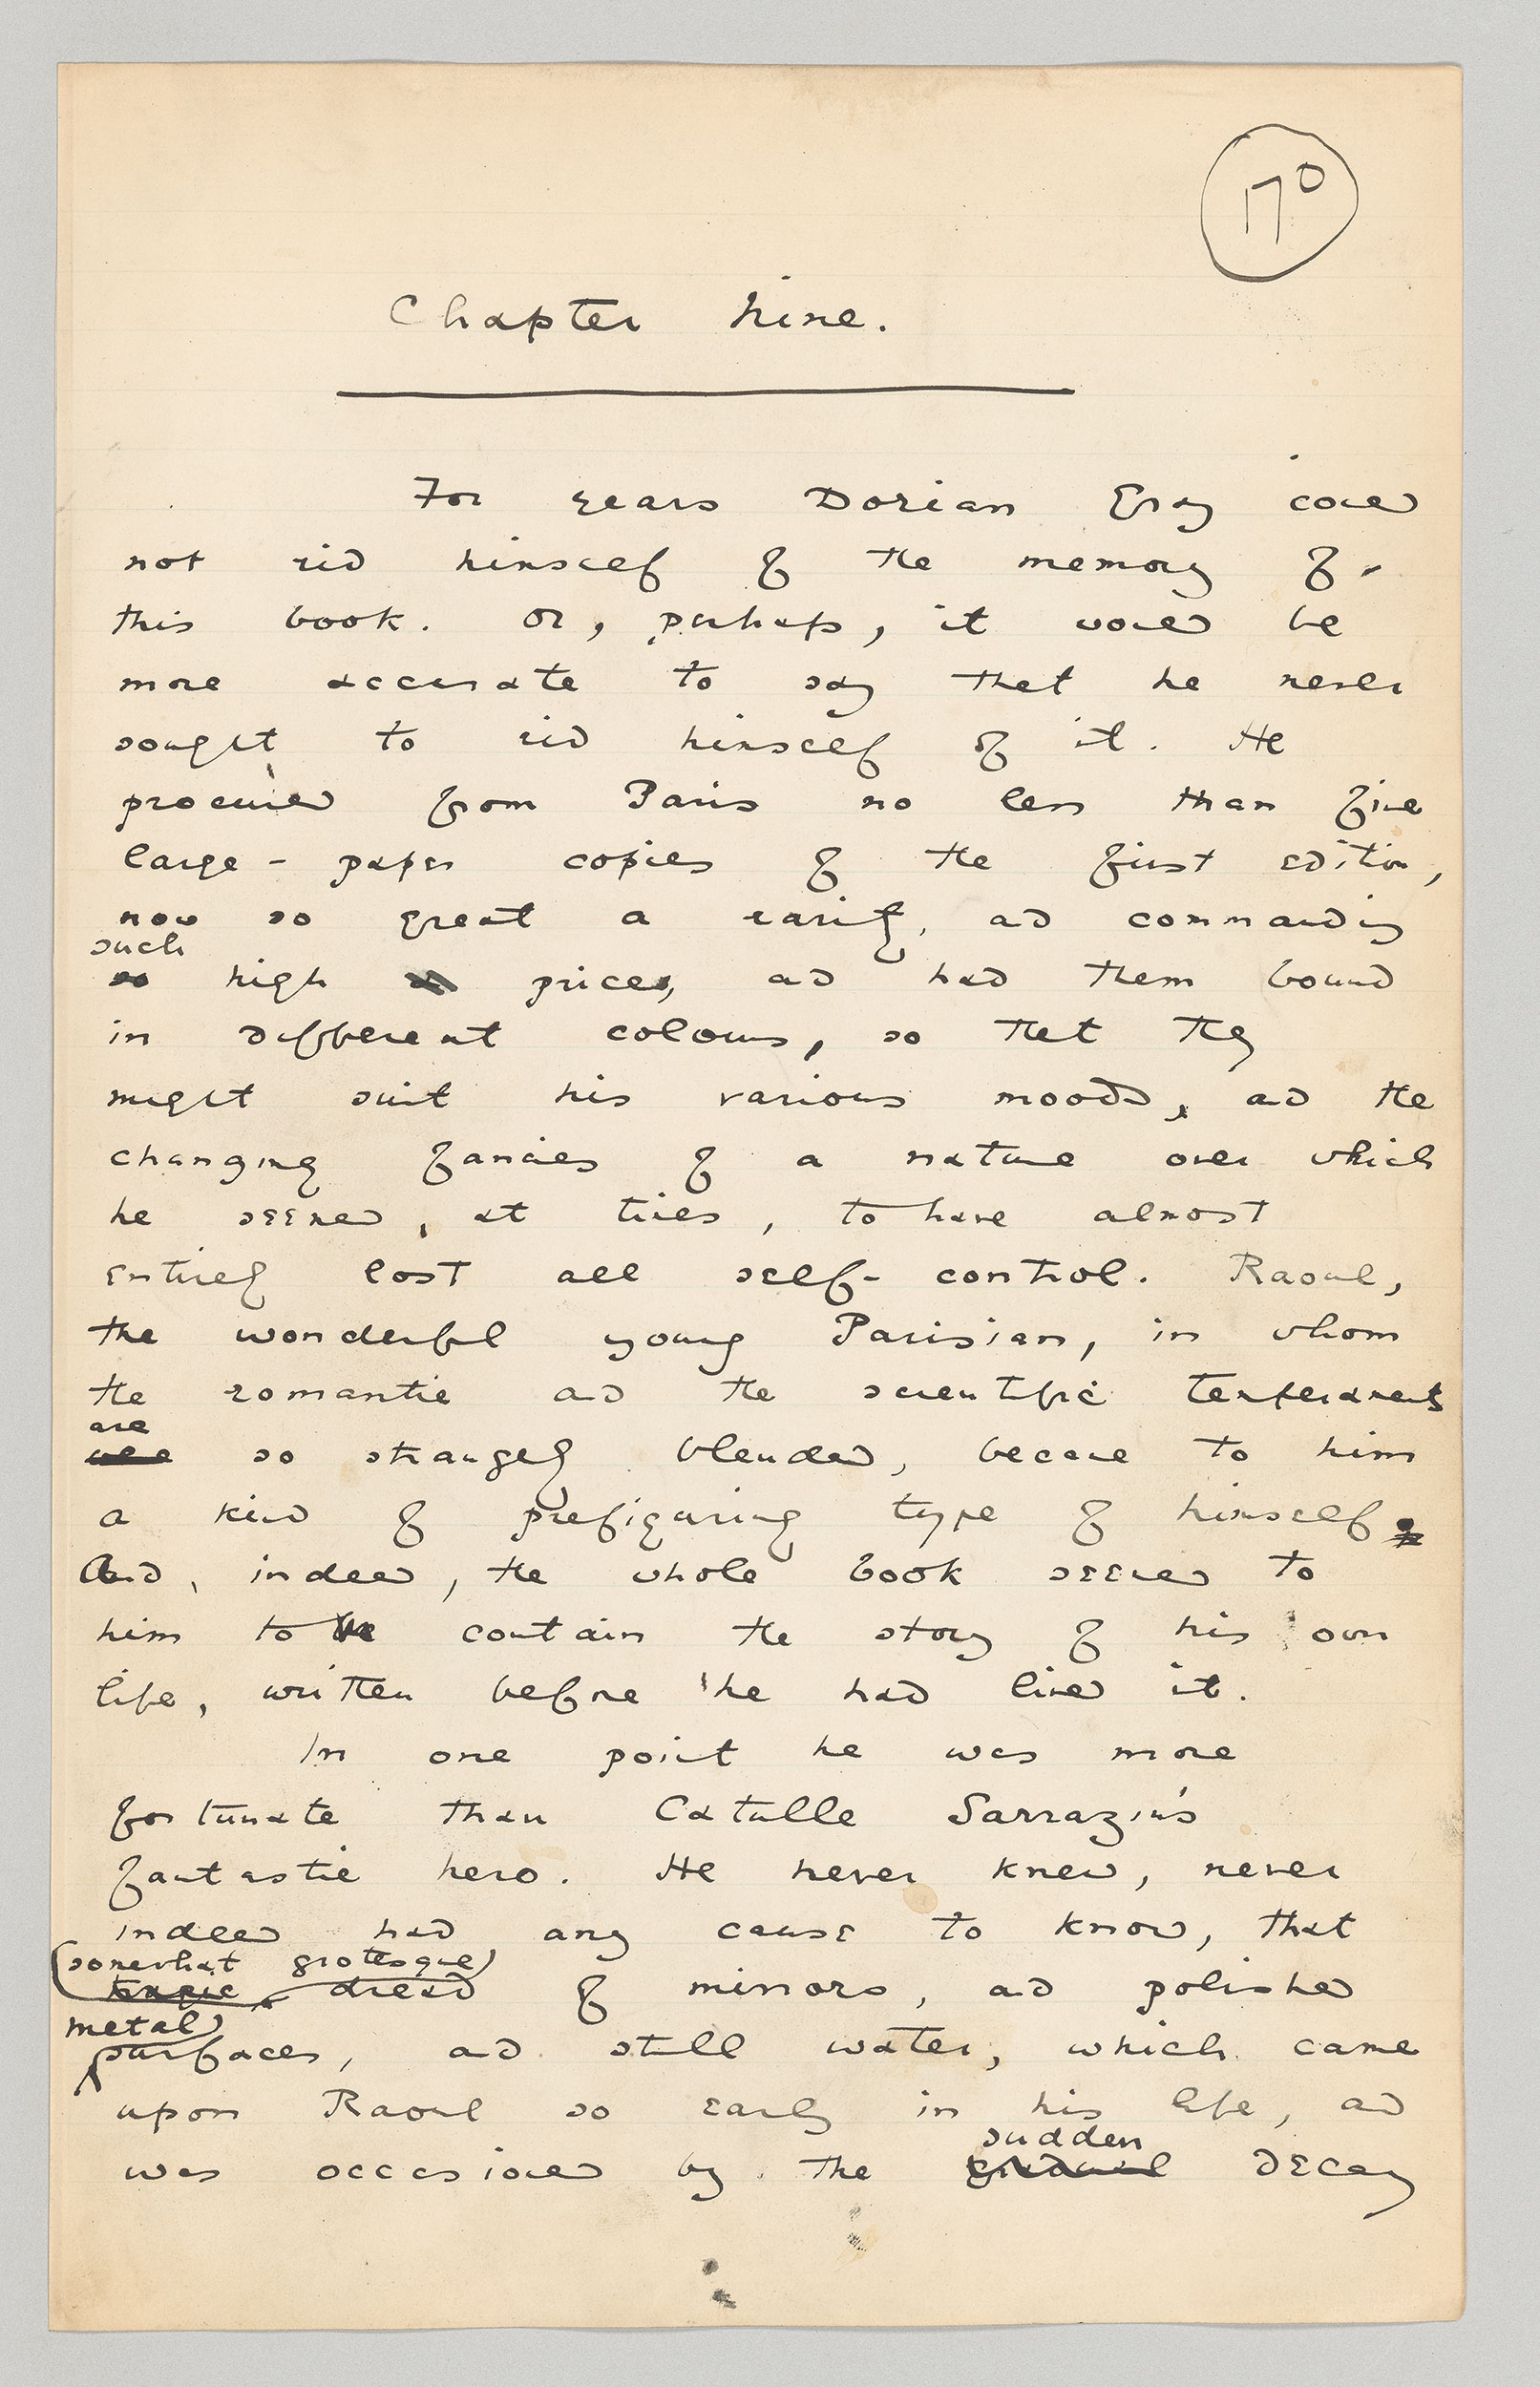 170
Chapter Nine.
For years Dorian Gray could
not rid himself of the memory of
this book. Or, perhaps, it would be
more accurate to say that he never
sought to rid himself of it. He
procured from Paris no less than five
large-paper copies of the first edition,
now so great a rarity, and commanding
such
so high prices, and had them bound
in different colours, so that they
might suit his various moods, and the
changing fancies of a nature over which
he seemed, at times, to have almost
entirely lost all self-control. Raoul,
the wonderful young Parisian, in whom
the romantic and the scientific temperaments
are
were so strangely blended, became to him
a kind of prefiguring type of himself.
And, indeed, the whole book seemed to
him to be contain the story of his own
life, written before he had lived it.
In one point he was more
fortunate than Catulle Sarrazin's
fantastic hero. He never knew, never
indeed had any cause to know, that
(somewhat grotesque)
tragic dread of mirrors, and polished
metal
surfaces, and still water, which came
upon Raoul so early in his life, and
sudden
was occasioned by the gradual decay